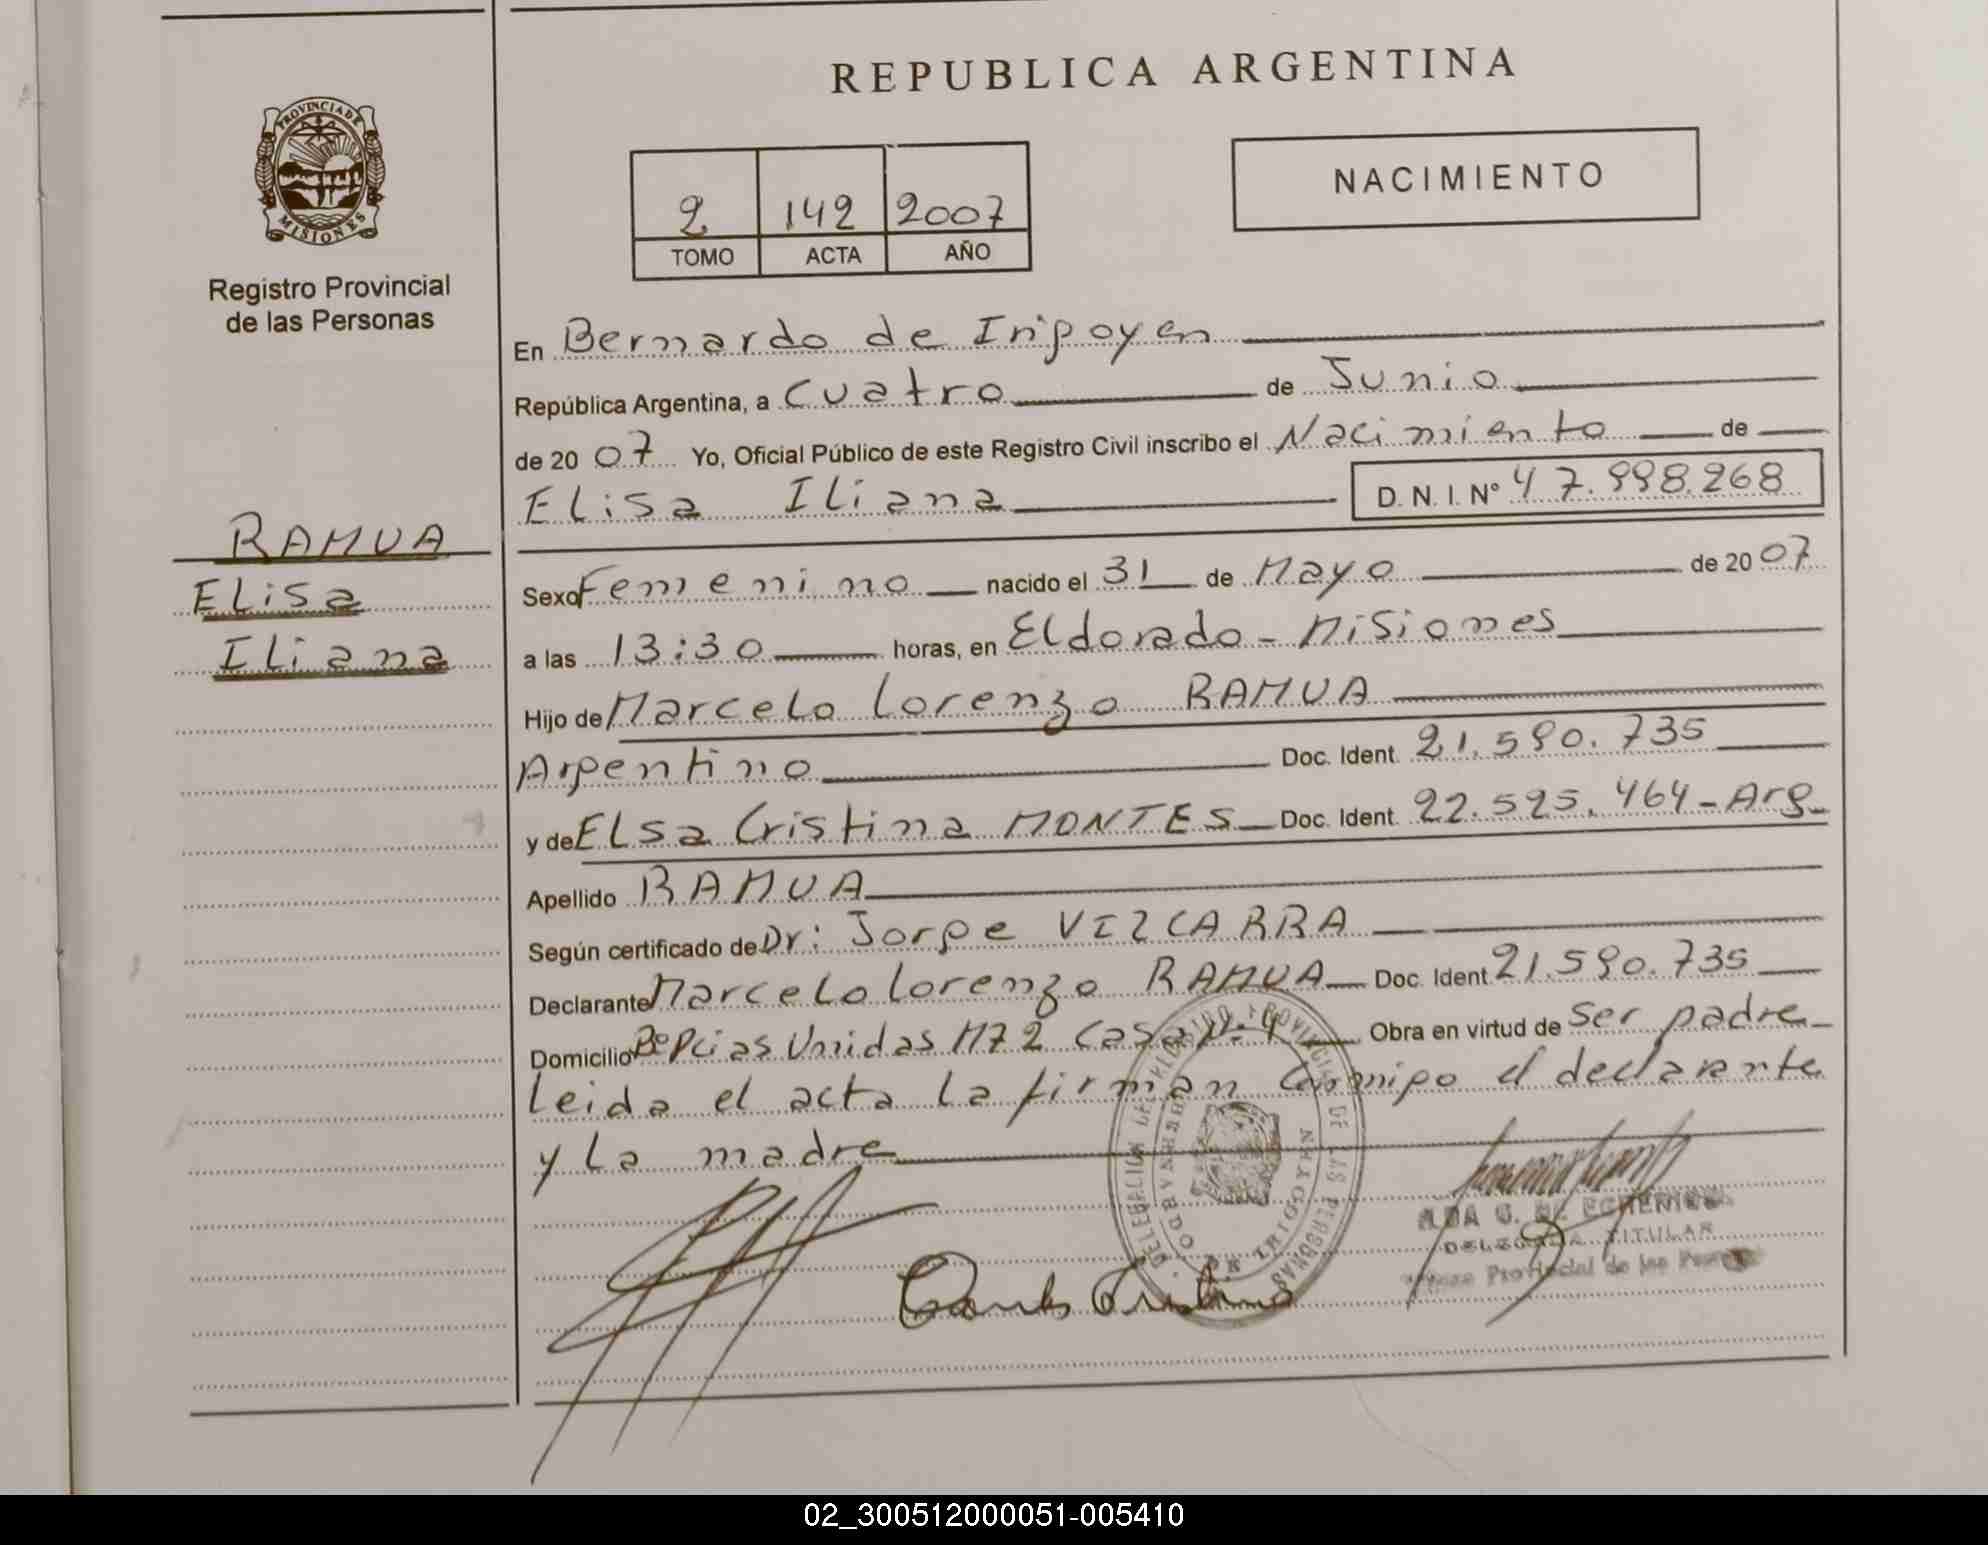 REPUBLICA ARGENTINA
PROVINCIA DE
MISIONES
Registro Provincial
de las Personas
2 142 2007
TOMO ACTA AÑO
NACIMIENTO
En Bernardo de Irigoyen
República Argentina, a cuatro de Junio
de 2007 Yo, Oficial Público de este Registro Civil inscribo el Nacimiento de
Elisa Iliana D.N.I. Nº 47.998.268
RAMUA
Elisa
Iliana
Sexo Femenino nacido el 31 de Mayo de 2007
a las 13:30 horas, en Eldorado - Misiones
Hijo de Marcelo Lorenzo RAMUA
Argentino Doc. Ident. 21.590.735
y de Elsa Cristina MONTES Doc. Ident. 22.525.464 - Arg.
Apellido RAMUA
Según certificado de Dr: Jorge VIZCARRA
Declarante Marcelo Lorenzo RAMUA Doc. Ident. 21.590.735
Domicilio Bº Pcias Unidas Mz 2 Casa Nº 4 Obra en virtud de ser padre
Leida el acta la firman conmigo el declarante
y la madre
DELEGACION DEL REGISTRO PROVINCIAL DE LAS PERSONAS
BERNARDO DE IRIGOYEN
G. DE ECHENIQUE
DELEGADA TITULAR
Provincial de las
02_300512000051-005410